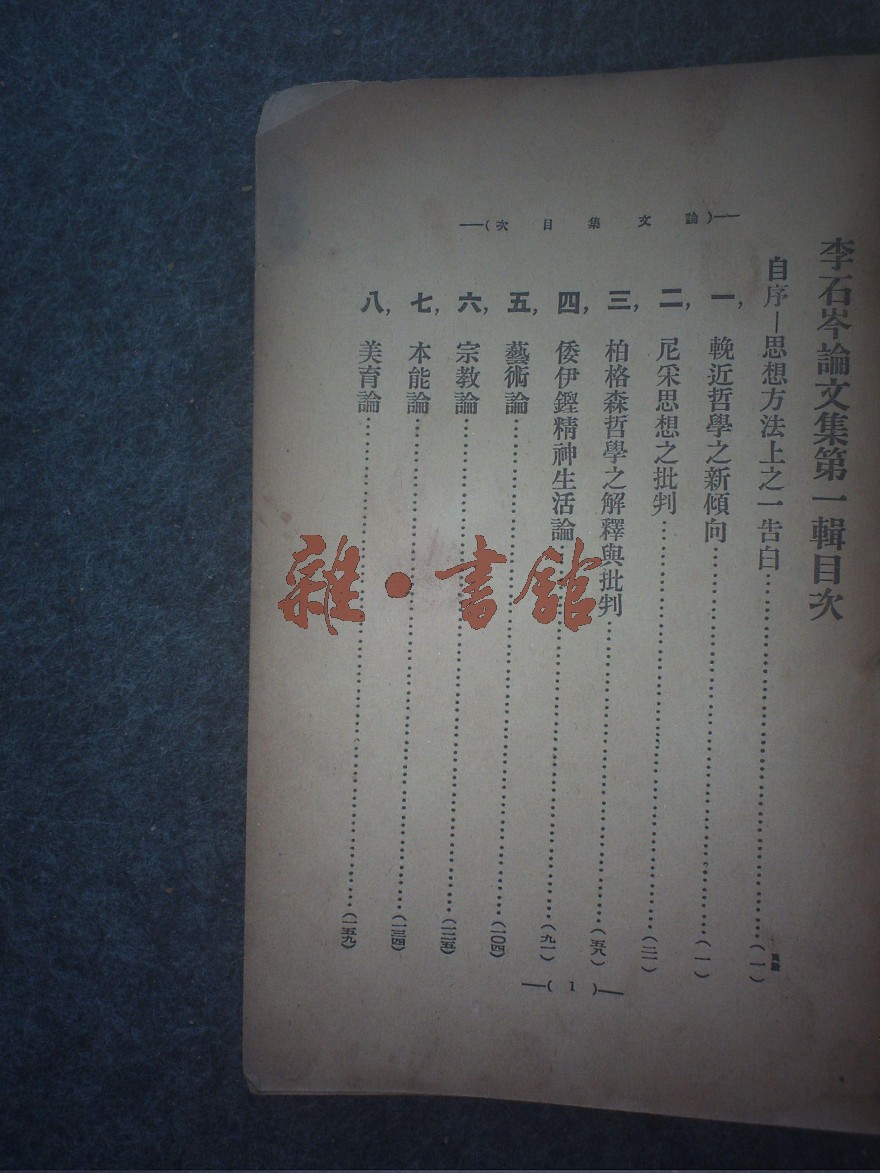 李石岑論文集第一輯目次
頁數
自序—思想方法上之一告白……(一)
一，輓近哲學之新傾向……(一)
二，尼采思想之批判……(二一)
三，柏格森哲學之解釋與批判……(五八)
四，倭伊鏗精神生活論……(九一)
五，藝術論……(一〇四)
六，宗教論……(一二五)
七，本能論……(一三四)
八，美育論……(一五九)
—(次目集文論)—
—( 1 )—
雜·書館